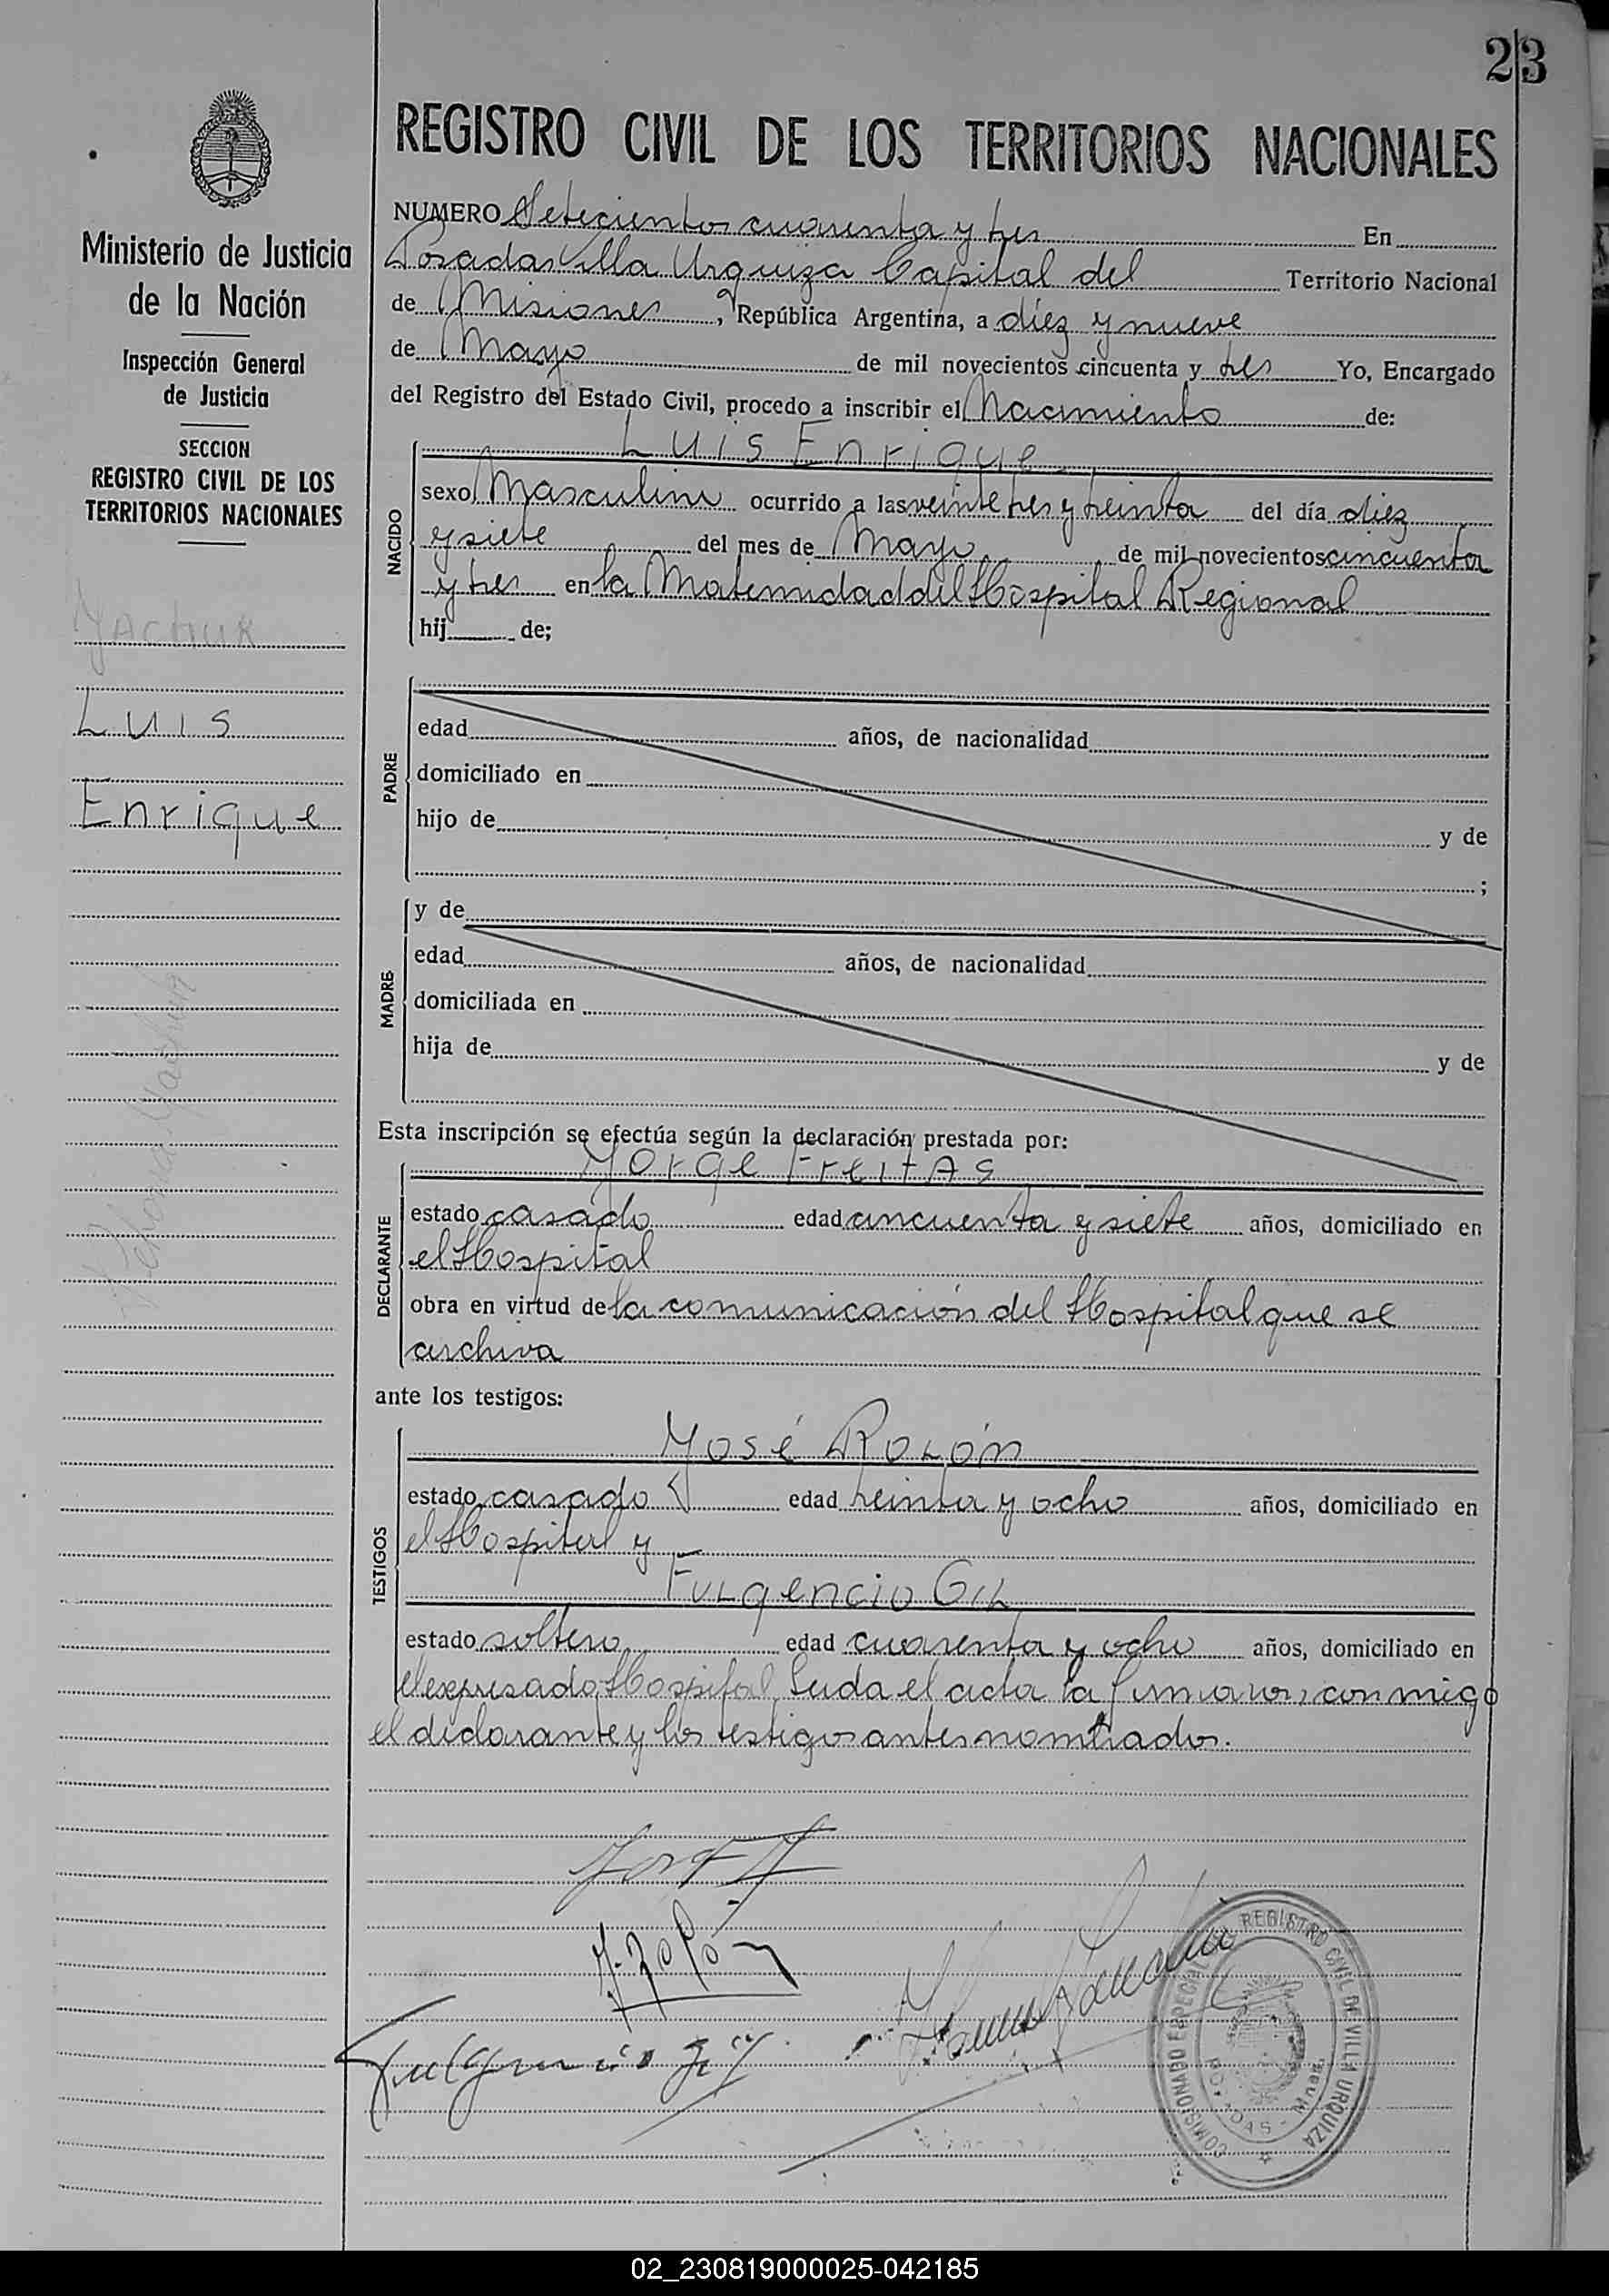 23
REGISTRO CIVIL DE LOS TERRITORIOS NACIONALES
Ministerio de Justicia
de la Nación
Inspección General
de Justicia
SECCION
REGISTRO CIVIL DE LOS
TERRITORIOS NACIONALES
Yachuk
Luis
Enrique
Yachuk
NUMERO Setecientos cuarenta y tres En
Posadas Villa Urquiza Capital del Territorio Nacional
de Misiones, República Argentina, a diez y nueve
de Mayo de mil novecientos cincuenta y tres Yo, Encargado
del Registro del Estado Civil, procedo a inscribir el Nacimiento de:
NACIDO
Luis Enrique
sexo Masculino ocurrido a las veinte tres y treinta del día diez
y siete del mes de Mayo de mil novecientos cincuenta
y tres en la Maternidad del Hospital Regional
hij de;
PADRE
edad años, de nacionalidad
domiciliado en
hijo de y de
;
MADRE
y de
edad años, de nacionalidad
domiciliada en
hija de y de
Esta inscripción se efectúa según la declaración prestada por:
DECLARANTE
Jorge Freitas
estado casado edad cincuenta y siete años, domiciliado en
el Hospital
obra en virtud de la comunicación del Hospital que se
archiva
ante los testigos:
TESTIGOS
José Rolón
estado casado edad treinta y ocho años, domiciliado en
el Hospital y
Fulgencio Gil
estado soltero edad cuarenta y ocho años, domiciliado en
el expresado Hospital Leida el acta la firmaron conmigo
el declarante y los testigos antes nombrados.
J. Rolón
Fulgencio Gil
COMISIONADO ESPECIAL DEL REGISTRO CIVIL DE VILLA URQUIZA
POSADAS - Mnes.
02_230819000025-042185